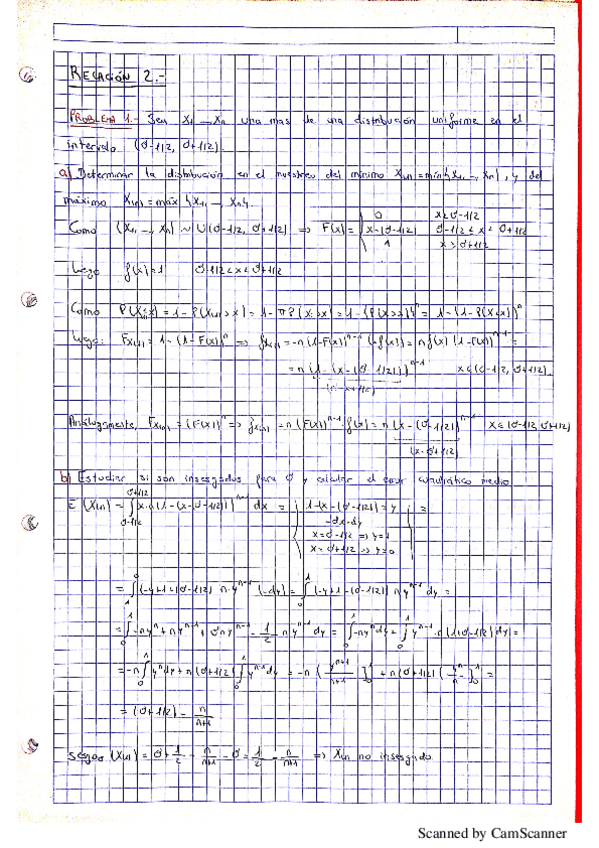 RELACIÓN 2.-
PROBLEMA 1.- Sea X₁, ..., Xₙ una mas de una distribución uniforme en el
intervalo (θ-1/2, θ+1/2).
a) Determinar la distribución en el muestreo del mínimo X₍₁₎=min{X₁, ..., Xₙ}, y del
máximo X₍ₙ₎=max{X₁, ..., Xₙ}.
Como (X₁, ..., Xₙ) ~ U(θ-1/2, θ+1/2) => F(x) = { 0 x<θ-1/2
x-(θ-1/2) θ-1/2<x<θ+1/2
1 x>θ+1/2
Luego f(x)=1 θ-1/2<x<θ+1/2
Como P(X₍₁₎≤x) = 1-P(X₍₁₎>x) = 1-πP(Xᵢ>x) = 1-{P(X>x)}ⁿ = 1-(1-P(X≤x))ⁿ
Luego: F_X₍₁₎ = 1-(1-F(x))ⁿ => f_X₍₁₎ = -n(1-F(x))ⁿ⁻¹(-f(x)) = n f(x)(1-F(x))ⁿ⁻¹ =
= n(1-(x-(θ-1/2)))ⁿ⁻¹ x∈(θ-1/2, θ+1/2).
Análogamente, F_X₍ₙ₎ = (F(x))ⁿ => f_X₍ₙ₎ = n(F(x))ⁿ⁻¹ f(x) = n(x-(θ-1/2))ⁿ⁻¹ x∈(θ-1/2, θ+1/2)
(x-θ+1/2)
b) Estudiar si son insesgados para θ y calcular el error cuadrático medio.
E(X₍₁₎) = ∫ x·n(1-(x-(θ-1/2)))ⁿ⁻¹ dx = { 1-(x-(θ-1/2)) = y } =
-dx=dy
x=θ-1/2 => y=1
x=θ+1/2 => y=0
= ∫(-y+1+(θ-1/2)) n yⁿ⁻¹ (-dy) = ∫(-y+1+(θ-1/2)) n yⁿ⁻¹ dy =
= ∫-nyⁿ+nyⁿ⁻¹+θnyⁿ⁻¹-1/2 nyⁿ⁻¹ dy = ∫-nyⁿdy+∫yⁿ⁻¹·n(1+θ-1/2)dy =
= -n∫yⁿdy+n(θ+1/2)∫yⁿ⁻¹dy = -n(yⁿ⁺¹/n+1]₀¹+n(θ+1/2)(yⁿ/n]₀¹ =
= (θ+1/2) - n/n+1
sesgo (X₍₁₎) = θ+1/2 - n/n+1 - θ = 1/2 - n/n+1 => X₍₁₎ no insesgado
Scanned by CamScanner